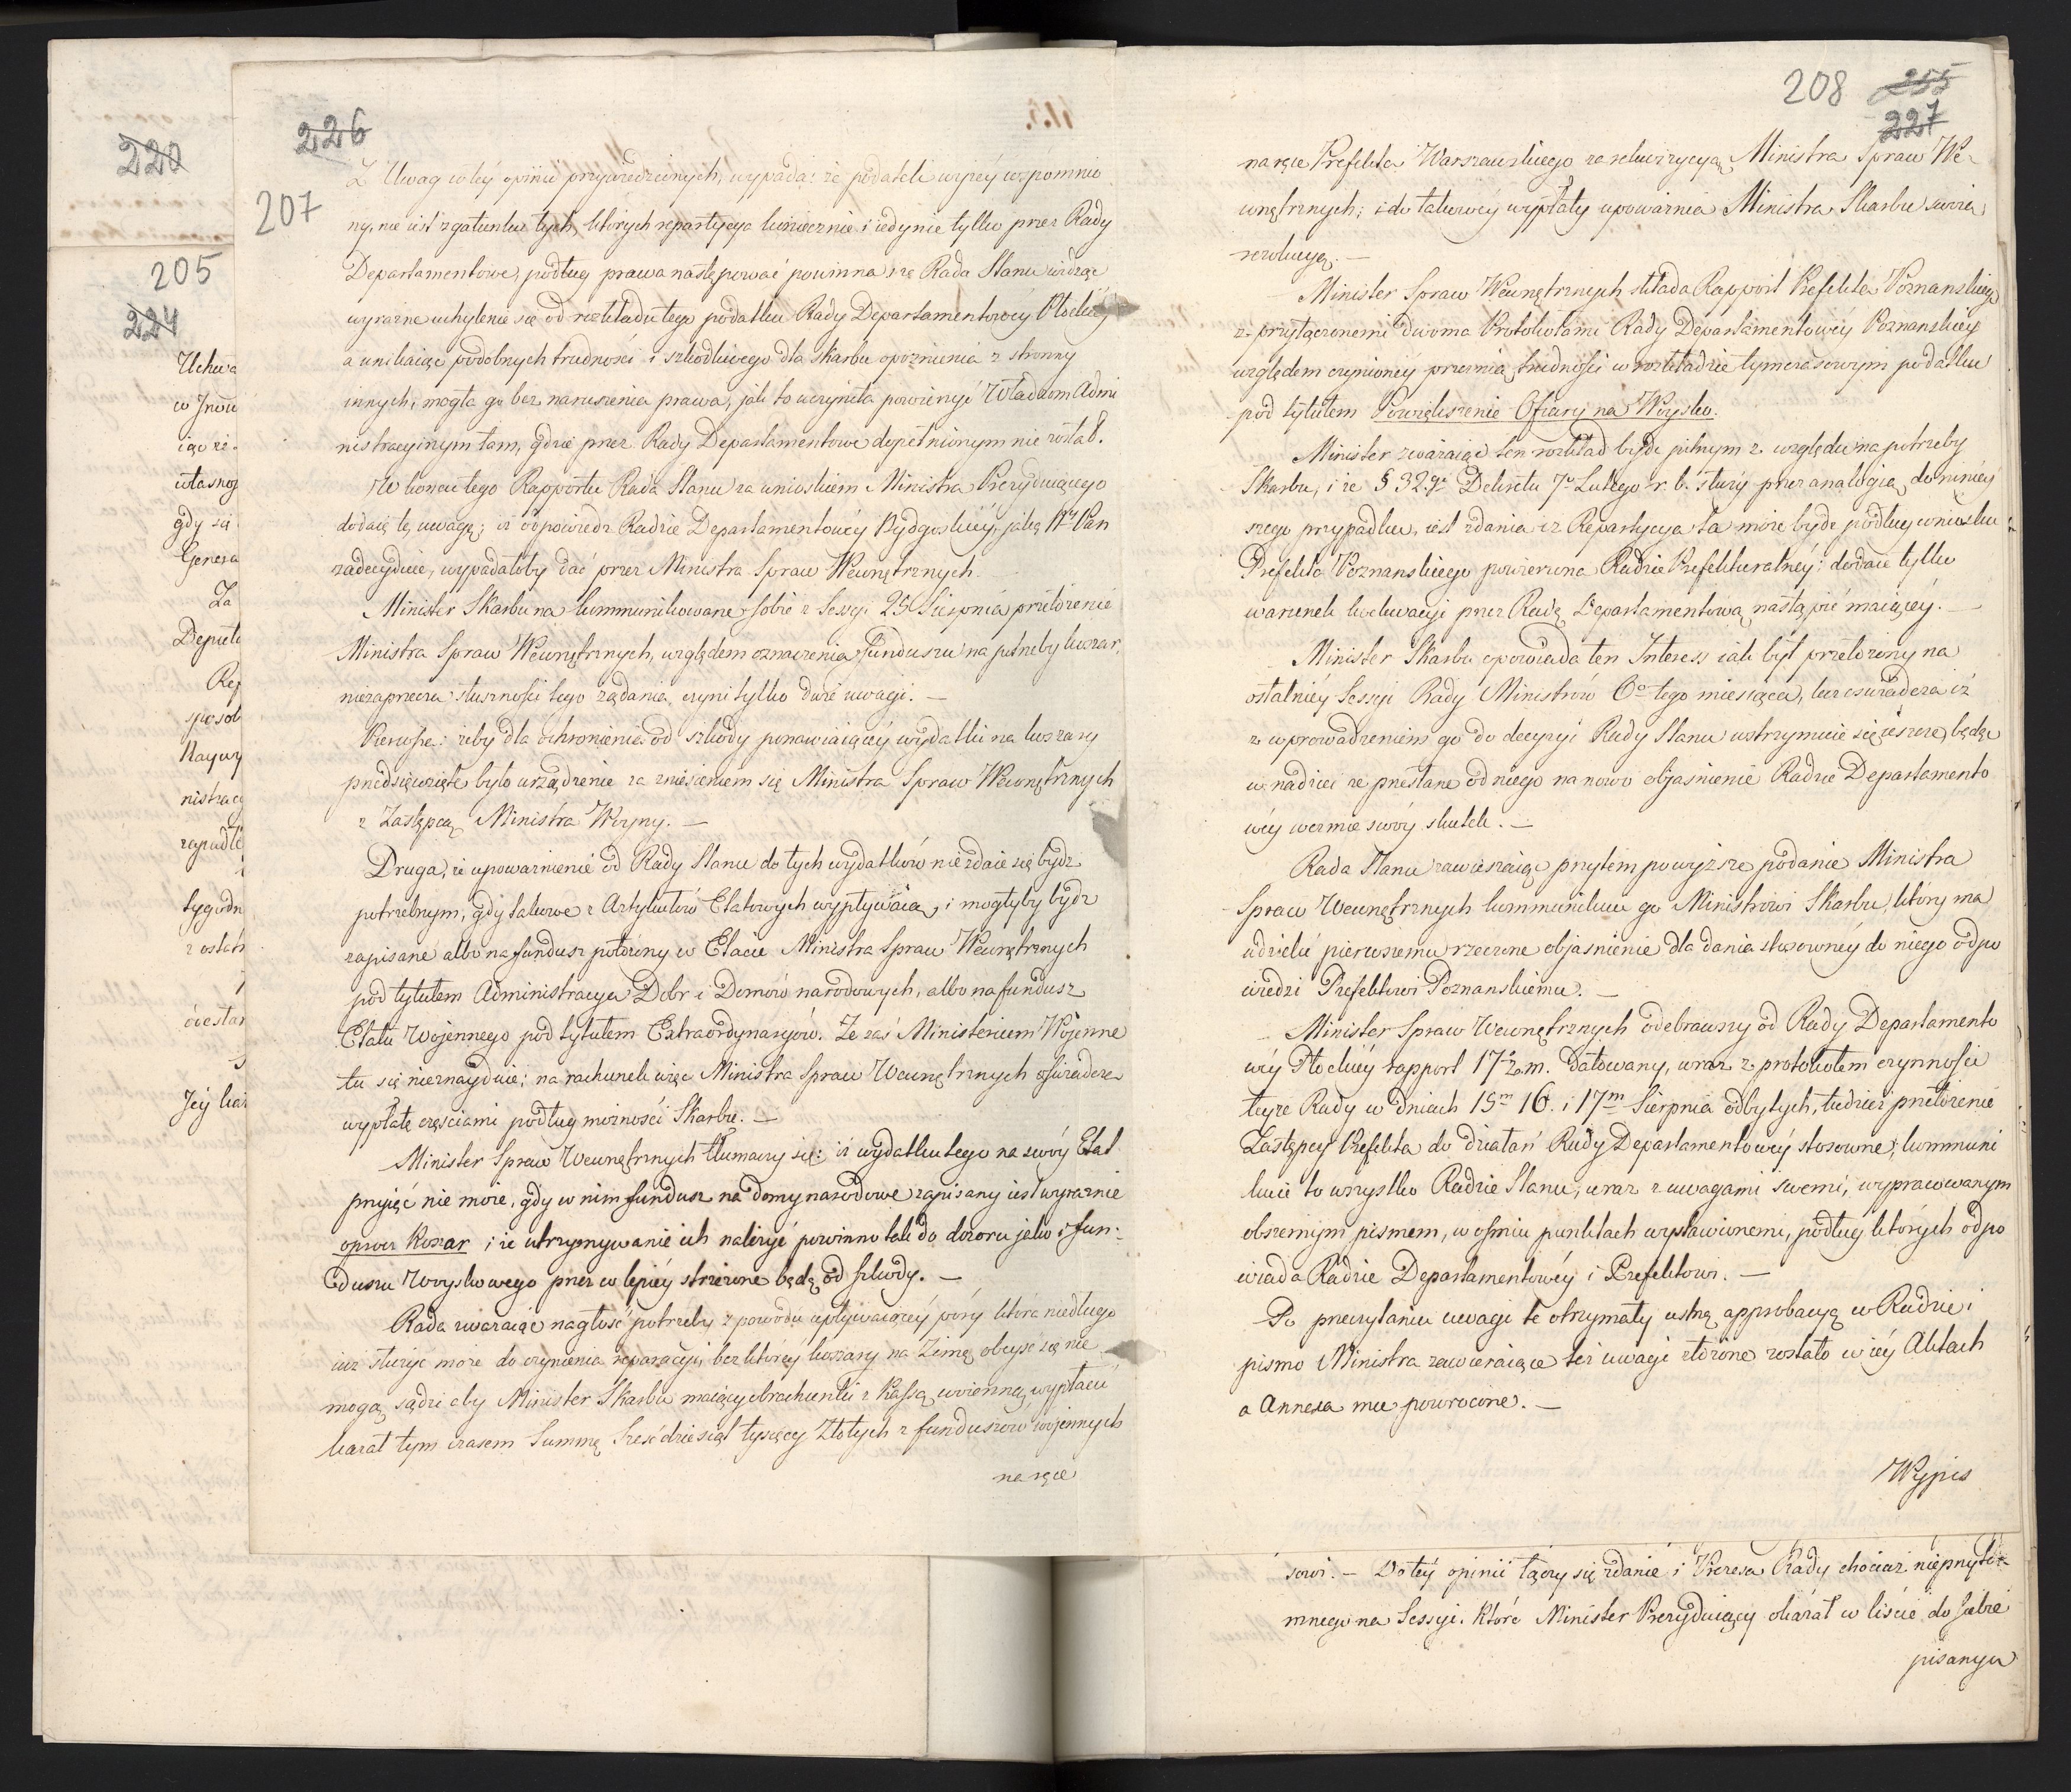 220
205
224
Uchwa
w Inow
własnog
gdy się
Genera
Za
Deputo
Rep
sposob
Naywy
nistracy
zapadłe
tygodn
z ostatn
226
207
Z Uwag w téy opinii przywiedzionych, wypada: że podatek wyżéy wspomnio
ny, nie iest z gatunku tych, których repartycya koniecznie i iedynie tylko przez Rady
Departamentowe, podług prawa następować powinna, że Rada Stanu widząc
wyraźne uchylenie się od rozkładu tego podatku Rady Departamentowéy Płockiéy
a unikaiąc podobnych trudności i szkodliwego dla skarbu opoznienia z strony
innych, mogła go bez naruszenia prawa, jak to uczyniła powierzyć Władzom Admi
nistracyinym tam, gdzie przez Rady Departamentowe dopełnionym nie został.
W końcu tego Rapportu Rada Stanu za wnioskiem Ministra Prezyduiącego
dodaie tę uwagę; iż odpowiedz Radzie Departamentowéy Bydgoskiéy, jaką N. Pan
zadecyduie, wypadałoby dać przez Ministra Spraw Wewnętrznych.
Minister Skarbu na kommunikowane sobie z Sessyi 25 Sierpnia przełożenie
Ministra Spraw Wewnętrznych, względem oznaczenia funduszu na potrzeby koszar,
niezaprzecza słuszności tego żądania, czyni tylko dwie uwagi. —
Pierwsza: żeby dla ochronienia od szkody ponawiaiącéy wydatki na koszary
przedsięwzięte było urządzenie za zniesieniem się Ministra Spraw Wewnętrznych
z Zastępcą Ministra Woyny. —
Druga, że upoważnienie od Rady Stanu do tych wydatków nie zdaie się bydz
potrzebnym, gdy takowe z Artykułów Etatowych wypływaią, i mogłyby bydz
zapisane albo na fundusz położony w Etacie Ministra Spraw Wewnętrznych
pod tytułem Administracya Dobr i Domów narodowych, albo na fundusz
Etatu Wojennego pod tytułem Extraordynaryów. Że zaś Ministerium Wojenne
tu się nieznayduie; na rachunek więc Ministra Spraw Wewnętrznych ofiaruie
wypłatę częściami podług możności Skarbu. —
Minister Spraw Wewnętrznych tłumaczy się: iż wydatku tego na swóy Etat
przyjąć nie może, gdy w nim fundusz na domy narodowe zapisany iest wyraźnie
oprocz Koszar i że utrzymywanie ich należyć powinno tak do dozoru jako i fun-
duszu Woyskowego przez co lepiéy strzeżone będą od szkody. —
Rada zważaiąc nagłość potrzeby z powodu upływaiącéy pory która niedługo
iuż służyć może do czynienia reparacyi, bez któréy koszary na Zimę obeyść się nie
mogą, sądzi aby Minister Skarbu maiący obrachunki z Kassą woienną, wypłacić
kazał tym czasem Summę Sześćdziesiąt tysięcy Złotych z funduszów wojennych
na ręce
208 255
227
na ręce Prefekta Warszawskiego za rekwizycyą Ministra Spraw We-
wnętrznych; i do takowéy wypłaty upoważnia Ministra Skarbu swoią
rezolucyą. —
Minister Spraw Wewnętrznych składa Rapport Prefekta Poznanskiego
z przyłączonemi dwoma Protokołami Rady Departamentowéy Poznanskiéy
względem czynionéy przez nią trudności w rozkładzie tymczasowym podatku
pod tytułem Powiększenie Ofiary na Woysko.
Minister zważaiąc ten rozkład bydz pilnym z względu na potrzeby
Skarbu, i że § 32go Dekretu 7o Lutego r. b. służy przez analogią do niniéy
szego przypadku, iest zdania iż Repartycya ta może bydz podług wniosku
Prefekta Poznanskiego powierzona Radzie Prefekturalnéy; dodaie tylko
warunek ewaluacyi przez Radę Departamentową nastąpić maiącéy. —
Minister Skarbu opowiada ten Interess iak był przełożony na
ostatniéy Sessyi Rady Ministrów 6o tego miesiąca, lecz oświadcza iż
z wprowadzeniem go do decyzyi Rady Stanu wstrzymuie się ieszcze, będąc
w nadziei że przesłane od niego na nowo objasnienie Radzie Departamento
wéy weźmie swóy skutek. —
Rada Stanu zawieszaiąc przytem powyższe podanie Ministra
Spraw Wewnętrznych kommunikuie go Ministrowi Skarbu, który ma
udzielić pierwszemu rzeczone objasnienie dla dania stosownéy do niego odpo
wiedzi Prefektowi Poznanskiemu. —
Minister Spraw Wewnętrznych odebrawszy od Rady Departamento
wéy Płockiéy rapport 17 z. m. datowany, wraz z protokołem czynności
teyże Rady w dniach 15m 16. i 17m Sierpnia odbytych, tudzież przełożenie
Zastępcy Prefekta do działań Rady Departamentowéy stosowne; kommuni
kuie to wszystko Radzie Stanu, wraz z uwagami swemi, wypracowanym
obszernym pismem, w ośmiu punktach wystawionemi, podług których odpo
wiada Radzie Departamentowéy i Prefektowi. —
Po przeczytaniu uwagi te otrzymały ustną approbacyą w Radzie i
pismo Ministra zawieraiące też uwagi złożone zostało w iéy Aktach
a Annexa mu powrocone. —
Wypis
sowi. — Do téy opinii łączy się zdanie i Prezesa Rady chociaż nieprzyto-
mnego na Sessyi. Które Minister Prezyduiący okazał w liście do siebie
pisanym